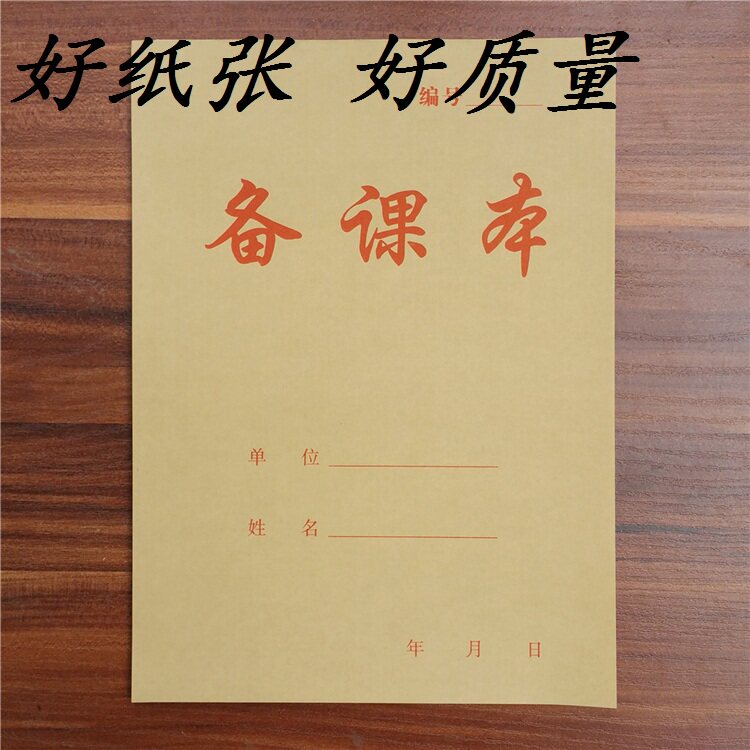 好纸张 好质量
编号
备课本
单 位
姓 名
年 月 日